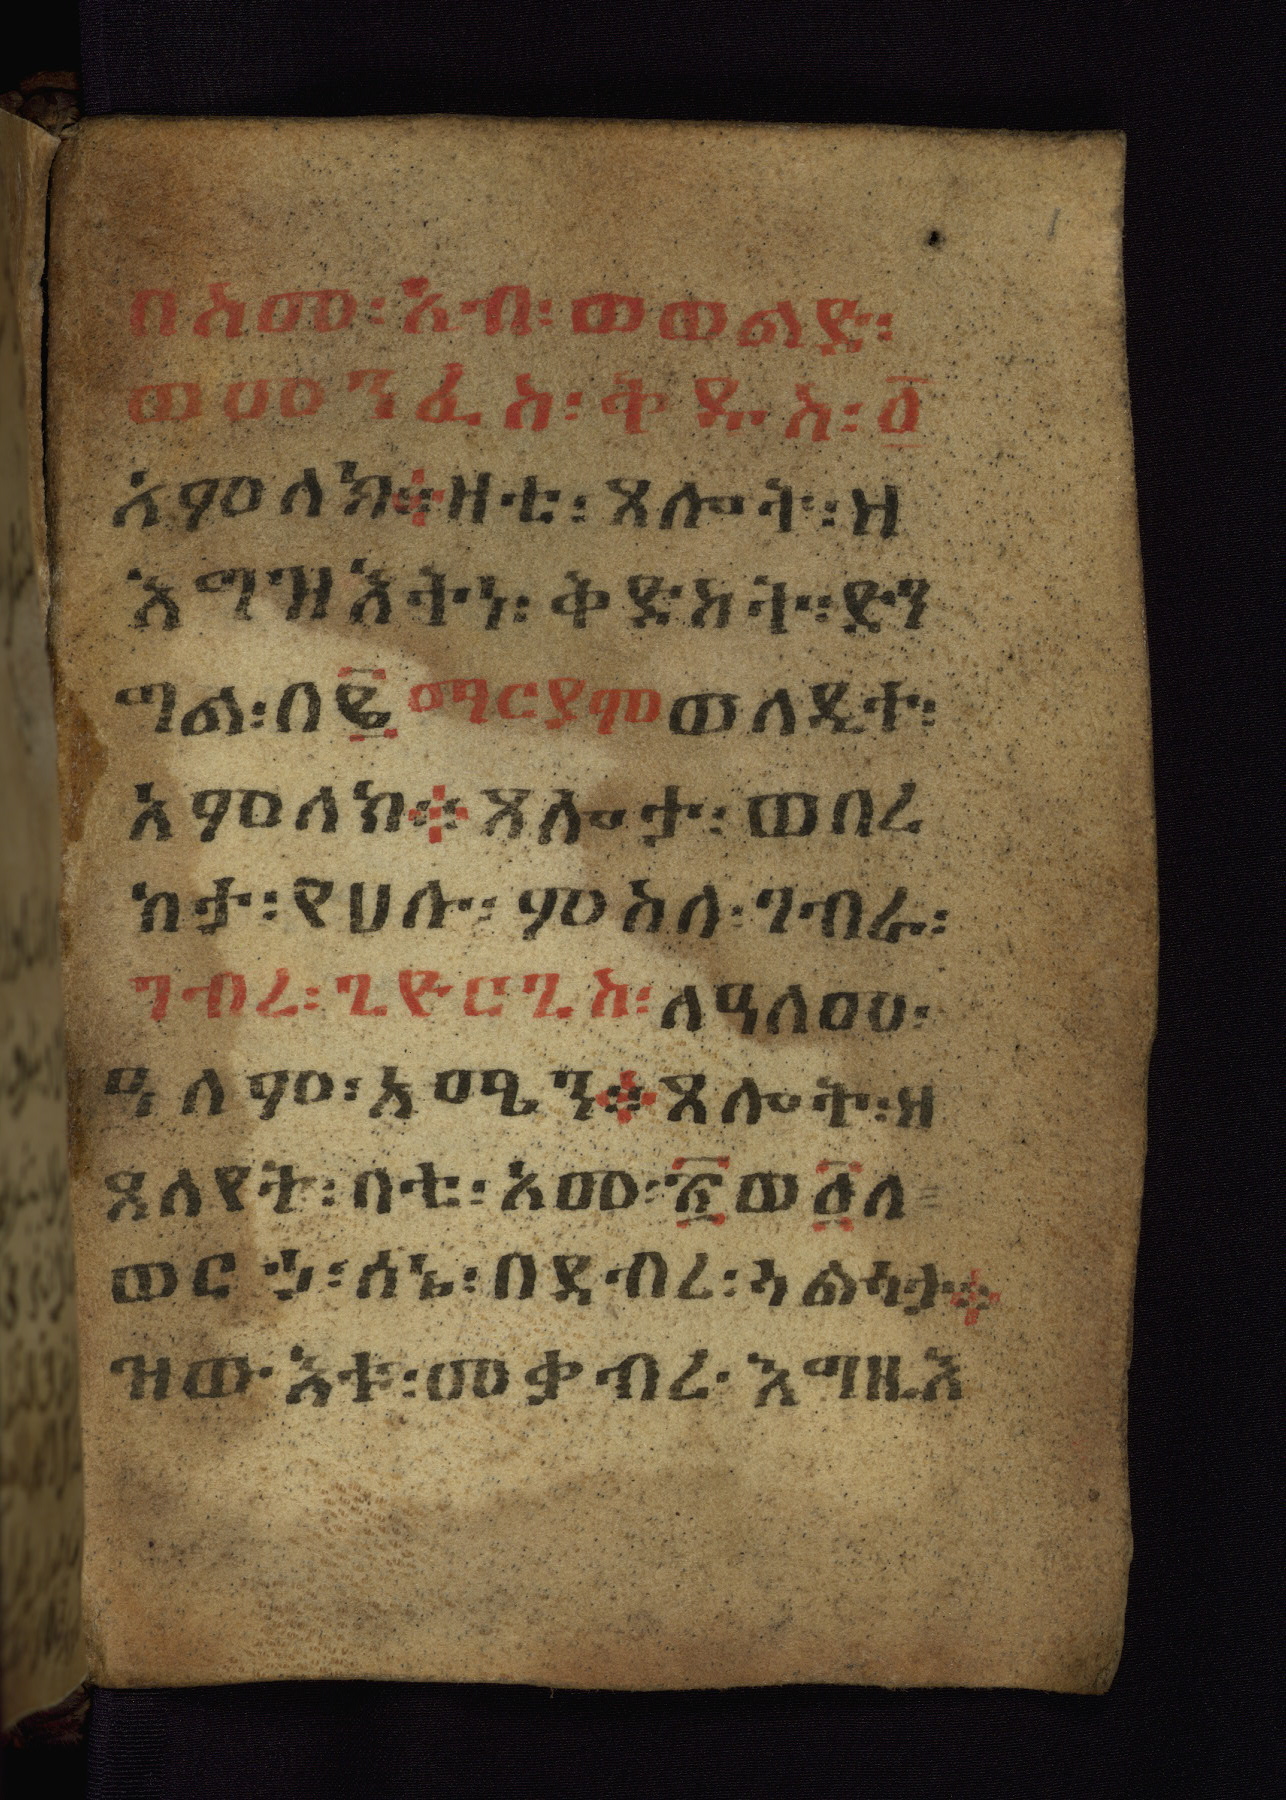 በስመ፡ አብ፡ ወወልድ፡
ወመንፈስ፡ ቅዱስ፡ ፩
አምላክ፨ ዛቲ፡ ጸሎት፡ ዘ
እግዝእትነ፡ ቅድስት፡ ድን
ግል፡ በ፪ ማርያም ወላዲተ፡
አምላክ፨ ጸሎታ፡ ወበረ
ከታ፡ የሀሉ፡ ምስለ፡ ገብራ፡
ገብረ፡ ጊዮርጊስ፡ ለዓለመ፡
ዓለም፡ አሜን፨ ጸሎት፡ ዘ
ጸለየት፡ ባቲ፡ አመ፡ ፳ወ፩ለ
ወርኃ፡ ሰኔ፡ በደብረ፡ ጎልጎታ፨
ዝውእቱ፡ መቃብረ፡ እግዚእ
1